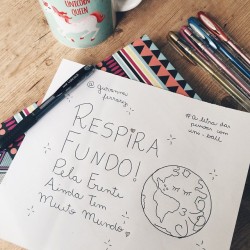 UNICORN
QUEEN
@giovanna
ferrarez
#A letra das
pessoas com
uni-ball
RESPIRA
FUNDO!
Pela Frente
Ainda Tem
Muito Mundo